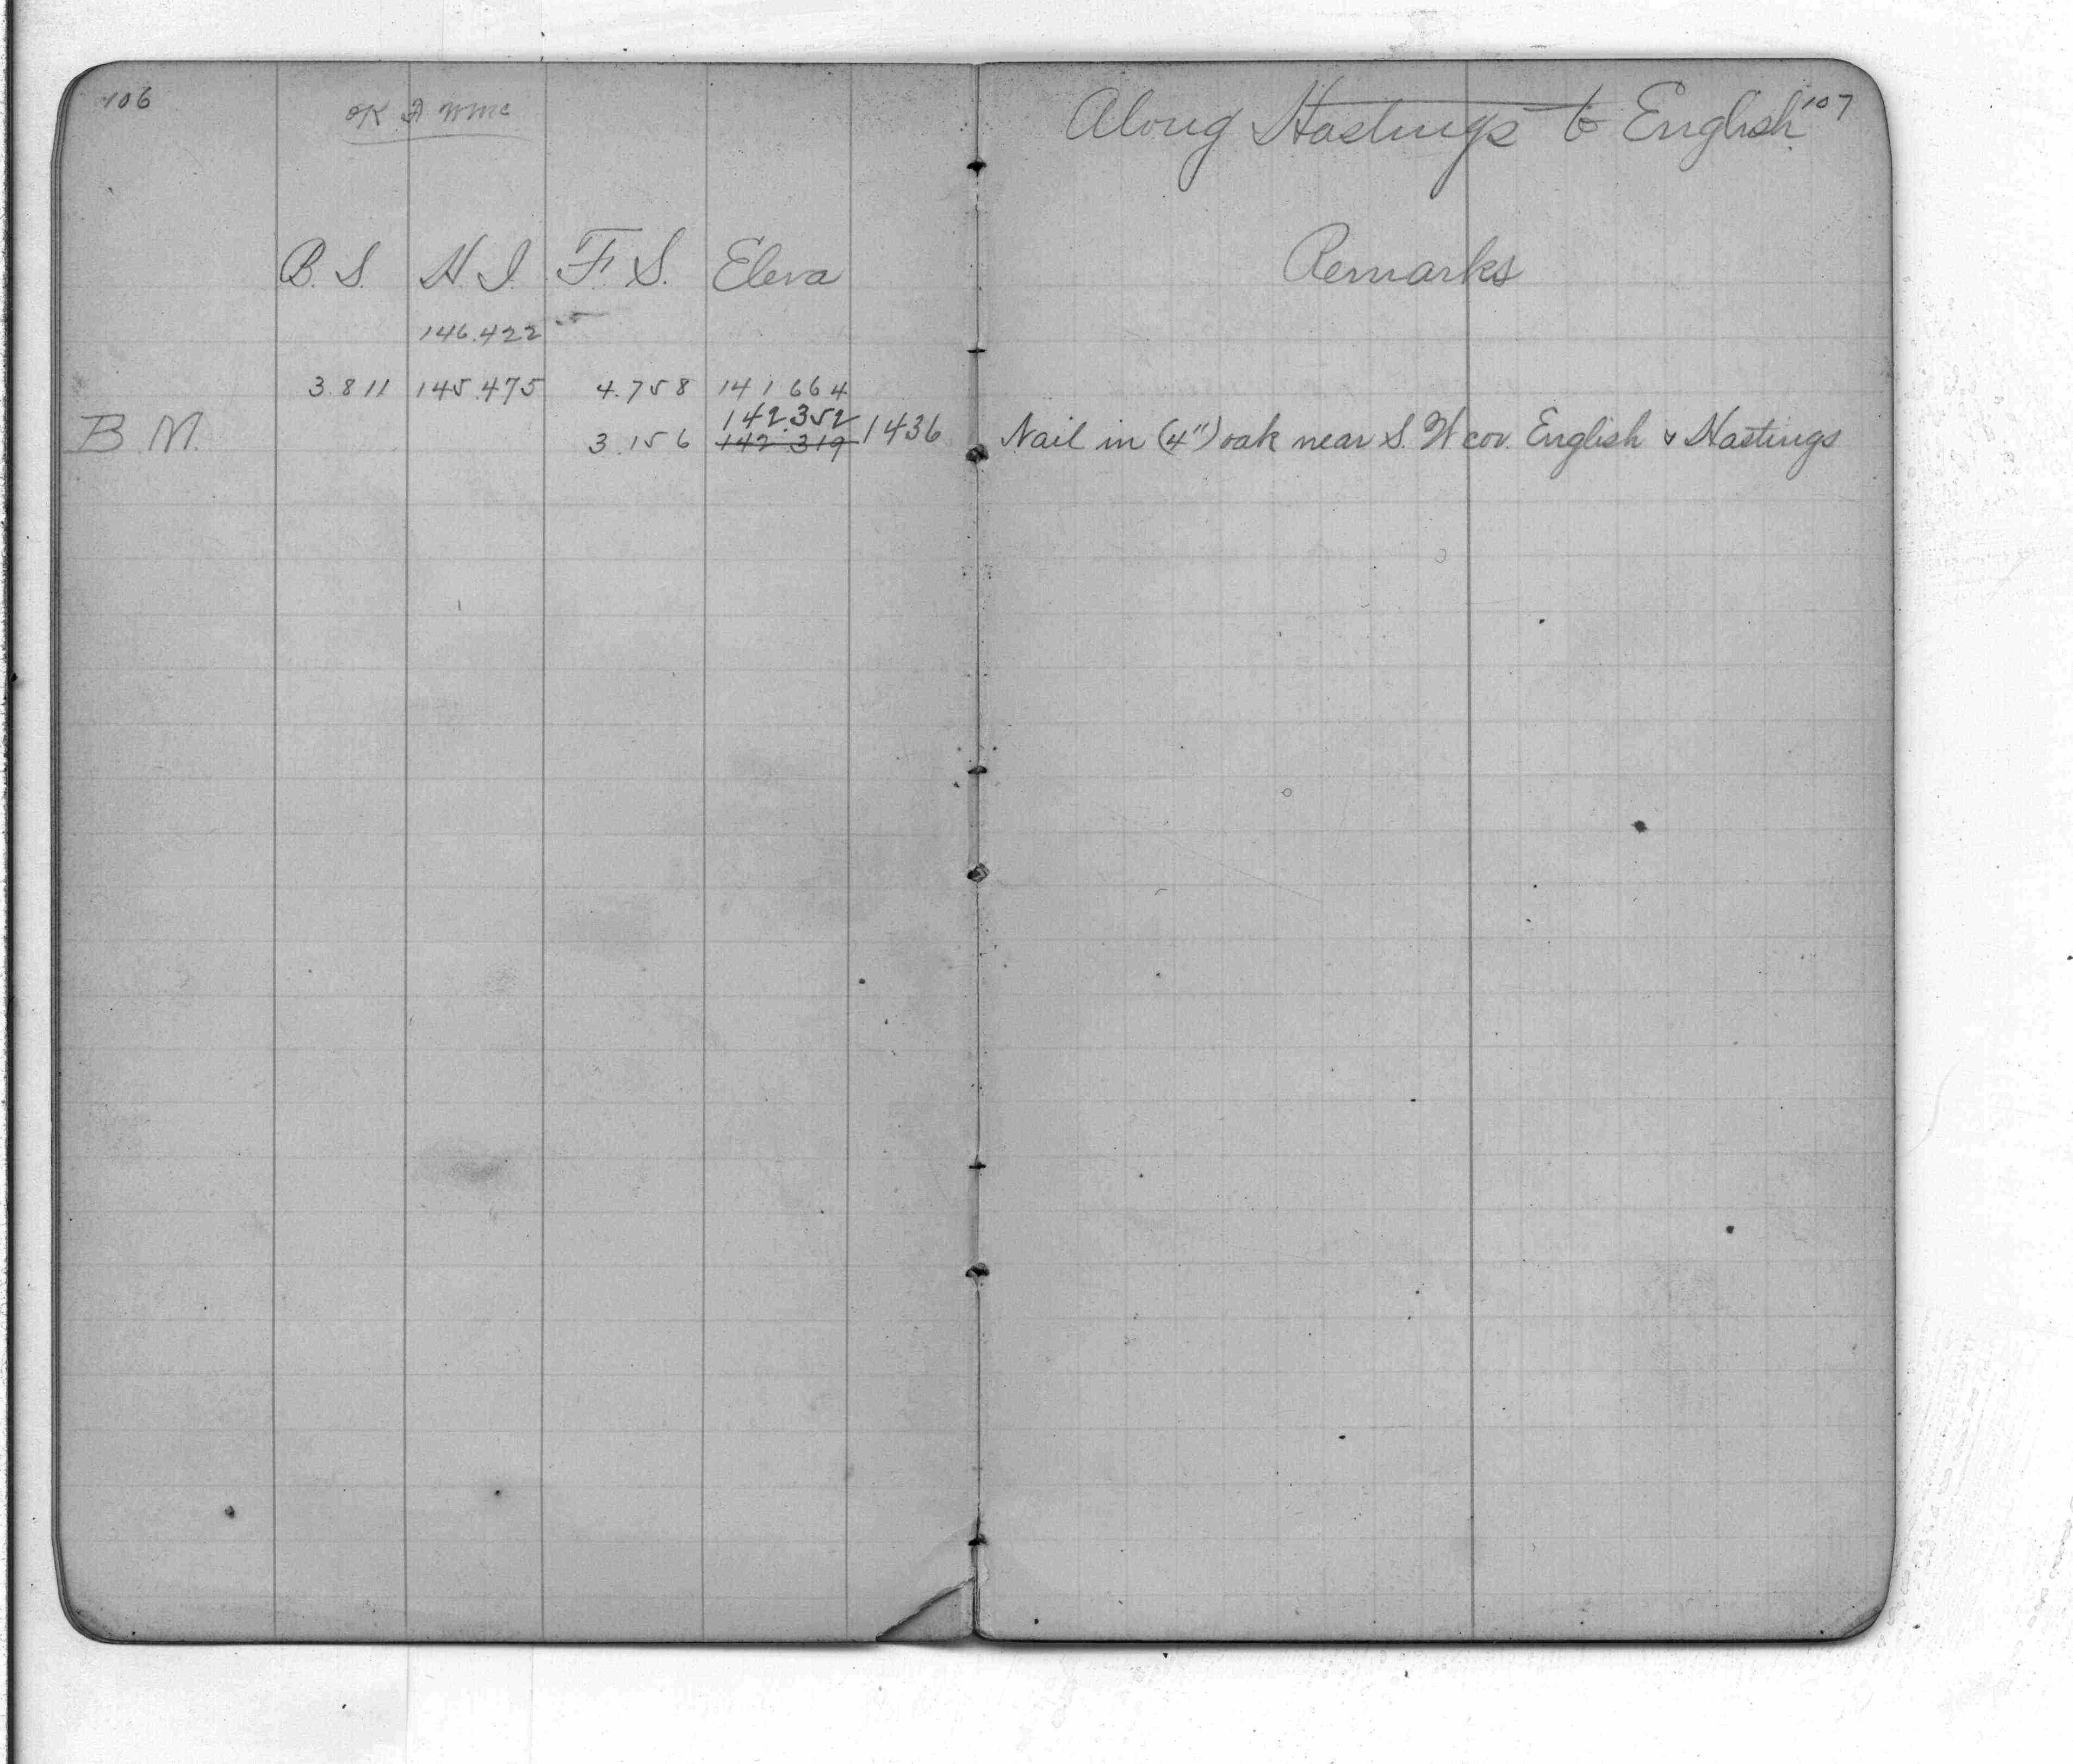 106
OK
B. S. H. I. F. S. Eleva
146.422
3.811 145.475 4.758 141 664
142.352
B. M. 3.156 142.319 1436
Along Hastings to English 107
Remarks
Nail in (4") oak near S. W cor. English & Hastings